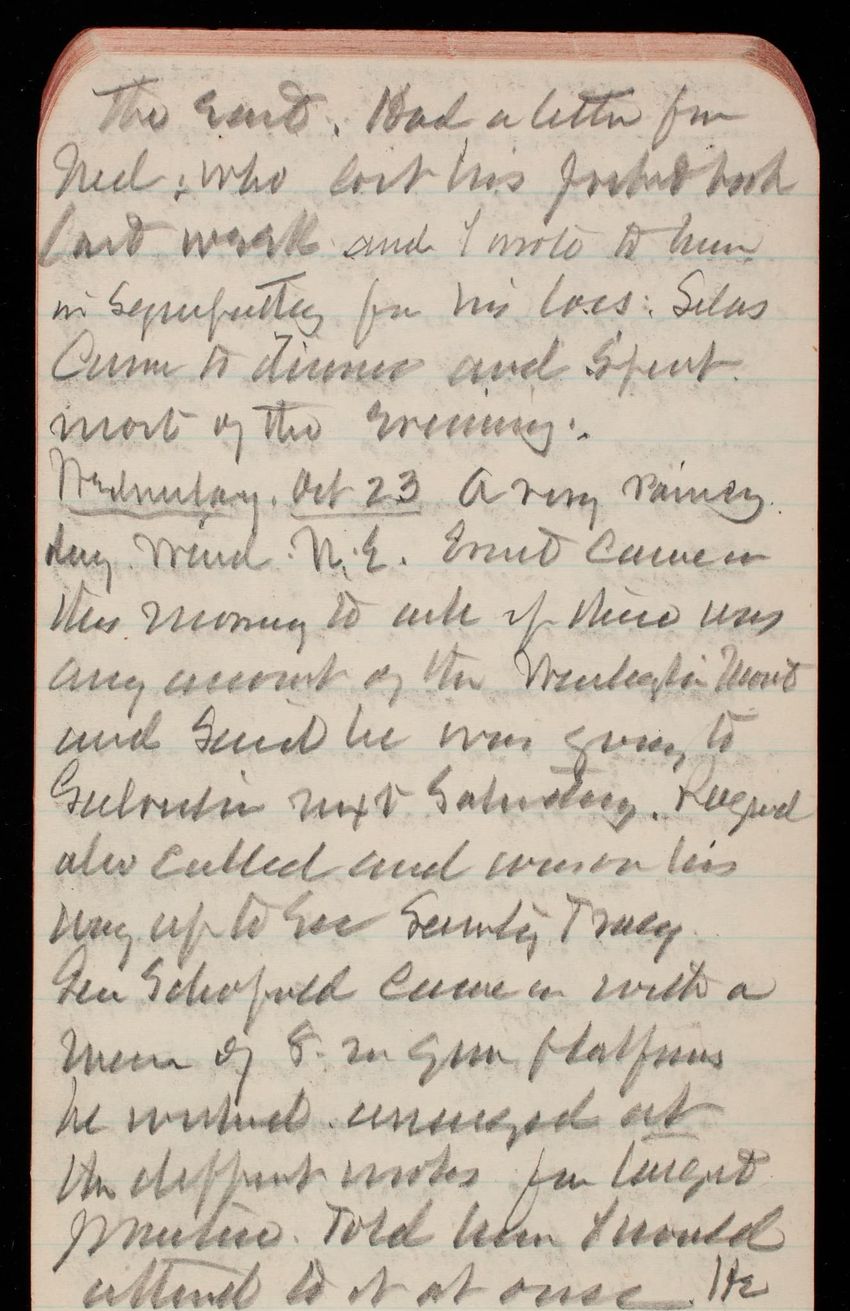 the East. Had a letter from
Ned, who lost his pocket book
last week and I wrote to him
in sympathy for his loss. Silas
Came to dinner and spent
most of the Evening.
Wednesday. Oct 23 A very rainey
day. Wind. N.E. Ernst came in
this morning to ask if there was
any account of the Washington Mont
and said he was going to
Galveston next Saturday.
also called and was on his
way up to See Secrety Tracy
Gen Schofield came in with a
Mem of 8. in gun platforms
he wished arranged at
the different works for target
practice. Told him I would
attend to it at once. He